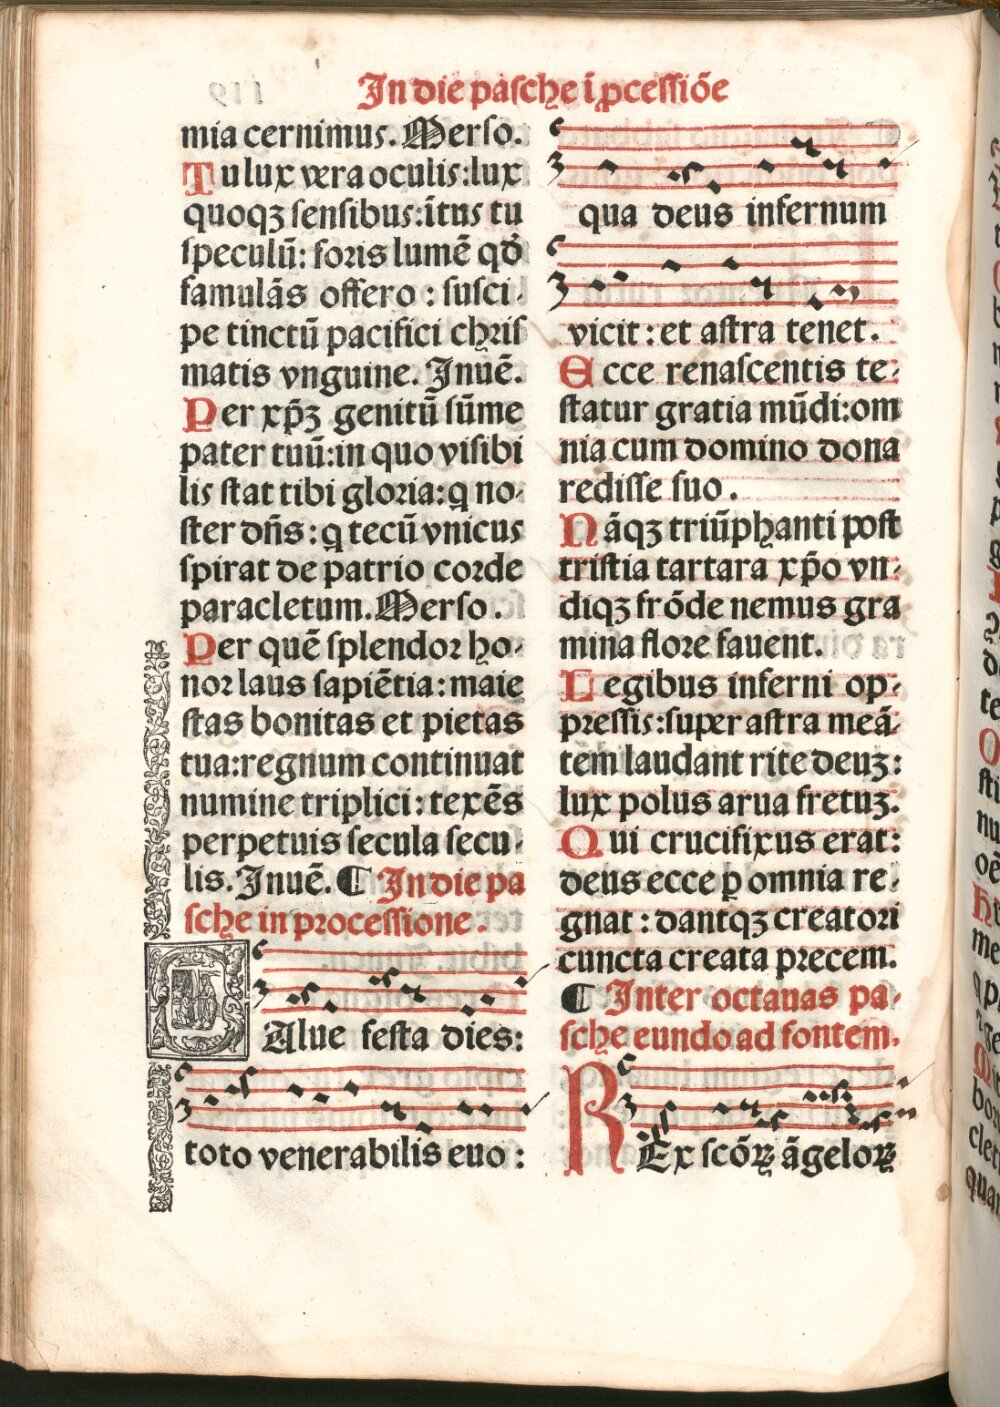 In die pasche ī ꝓcessiōe
mia cernimus. Merso.
Tu lux vera oculis: lux
quoqꝫ sensibus: ītus tu
speculū: foris lumē qď
famulās offero: susci-
pe tinctū pacifici chris
matis vnguine. Inuē.
Per xp̄ꝫ genitū sūme
pater tuū: in quo visibi
lis stat tibi gloria: q no-
ster dn̄s: q tecū vnicus
spirat de patrio corde
paracletum. Merso.
Per quē splendor ho-
nor laus sapiētia: maie
stas bonitas et pietas
tua: regnum continuat
numine triplici: texēs
perpetuis secula secu-
lis. Inuē. ¶ In die pa
sche in processione.
Salue festa dies:
toto venerabilis euo:
qua deus infernum
vicit: et astra tenet.
Ecce renascentis te-
statur gratia mūdi: om
nia cum domino dona
redisse suo.
Nāqꝫ triūphanti post
tristia tartara xp̄o vn-
diqꝫ frōde nemus gra
mina flore fauent.
Legibus inferni op-
pressis: super astra meā-
tem laudant rite deuꝫ:
lux polus arua fretuꝫ.
Qui crucifixus erat:
deus ecce ꝑ omnia re-
gnat: dantqꝫ creatori
cuncta creata precem.
¶ Inter octauas pa-
sche eundo ad fontem.
REx scōꝝ āgeloꝝ